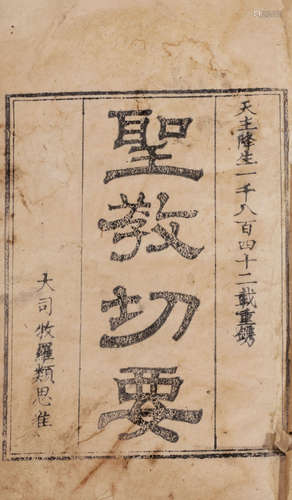 天主降生一千八百四十二載重鐫
聖教切要
大司牧羅類思准